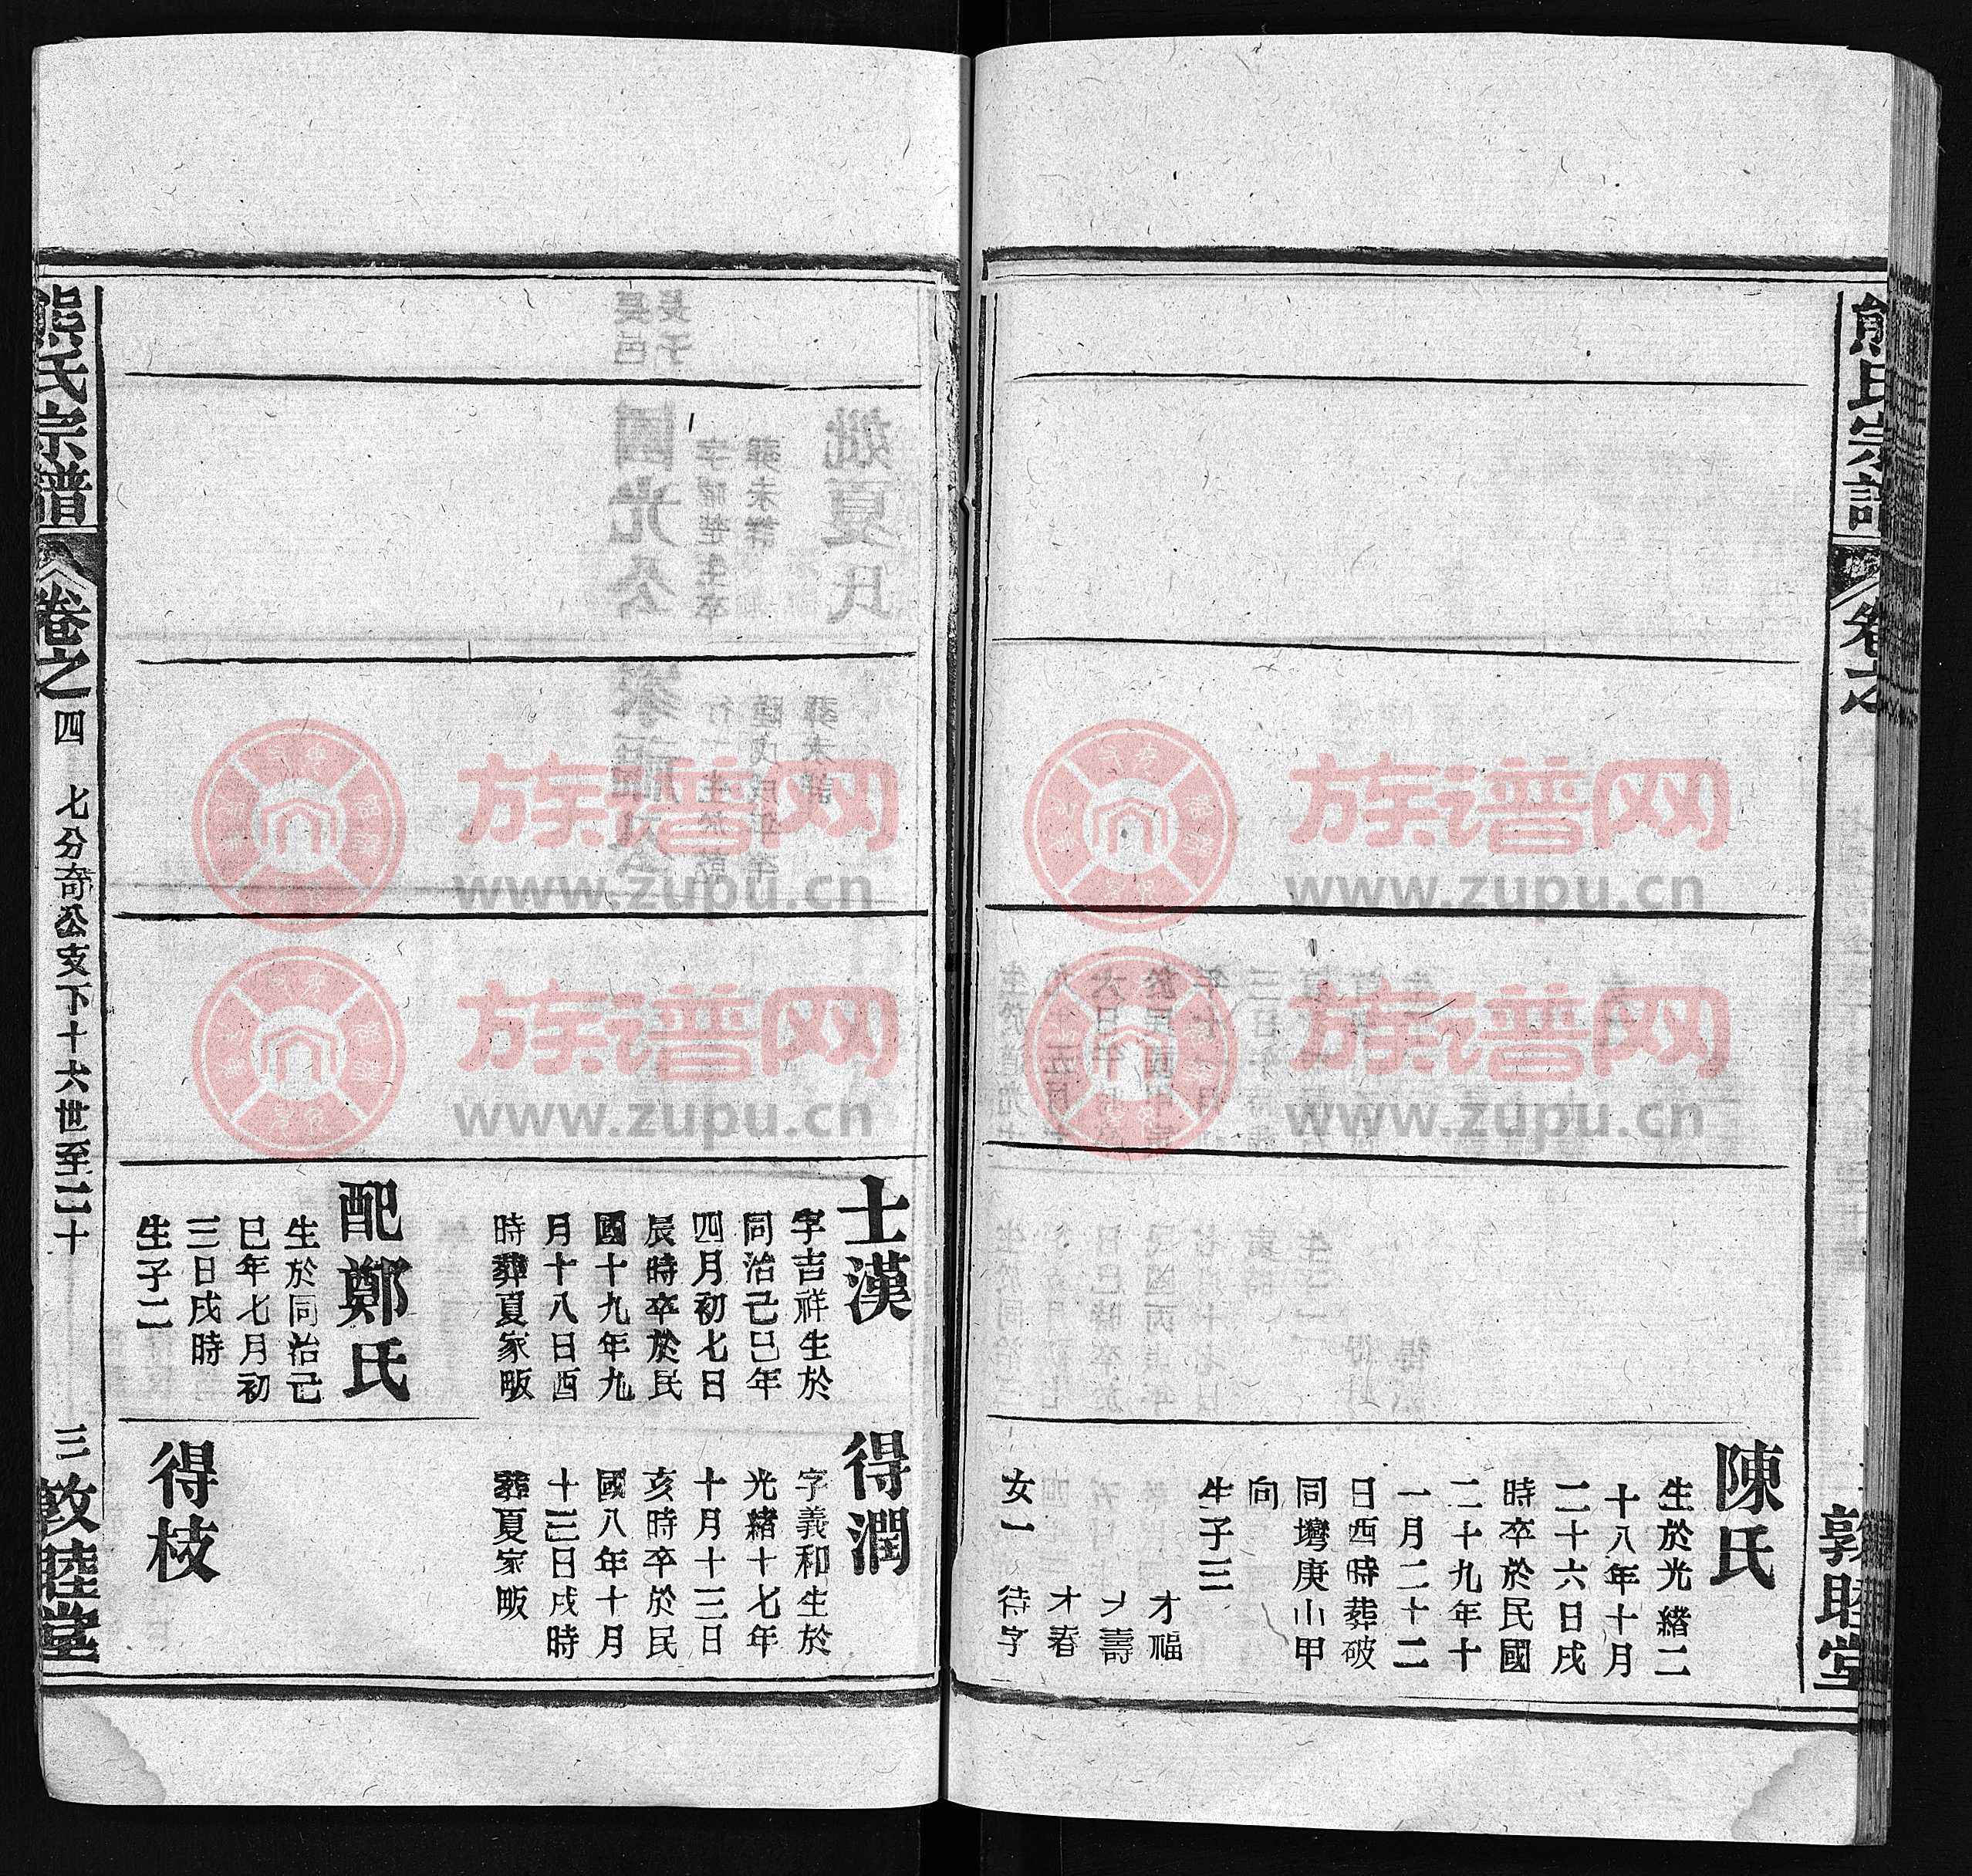 熊氏宗譜
卷之
敦睦堂
陳氏
生於光緒二
十八年十月
二十六日戌
時卒於民國
二十九年十
一月二十二
日酉時葬破
同灣庚山甲
向
生子三
才福
才壽
才春
女一 待字
士漢
字吉祥生於
同治己巳年
四月初七日
辰時卒於民
國十九年九
月十八日酉
時葬夏家畈
配鄭氏
生於同治己
巳年七月初
三日戌時
生子二
得潤
字義和生於
光緒十七年
十月十三日
亥時卒於民
國八年十月
十三日戌時
葬夏家畈
得枝
熊氏宗譜
卷之四 七分奇公支下十六世至二十
三 敦睦堂
族谱网
www.zupu.cn
族谱网
www.zupu.cn
族谱网
www.zupu.cn
族谱网
www.zupu.cn